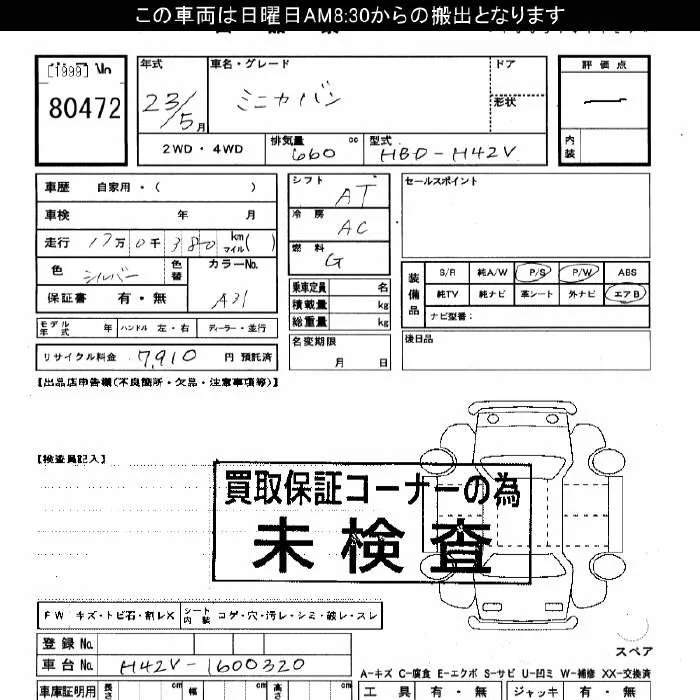 この車両は日曜日AM8:30からの搬出となります
[1999]
80472
年式
23/5月
車名・グレード
ミニカバン
ドア
形状
評価点
—
内装
2WD・4WD
排気量 660 cc
型式 HBD-H42V
車歴 自家用・( )
車検 年 月
走行 17万 0千 380 km マイル( )
色 シルバー
色替
カラーNo. A31
保証書 有・無
モデル年式 年 ハンドル 左・右 ディーラー・並行
リサイクル料金 7,910 円 預託済
シフト AT
冷房 AC
燃料 G
乗車定員 名
積載量 kg
総重量 kg
名変期限
月 日
セールスポイント
装備品
S/R 純A/W P/S P/W ABS
純TV 純ナビ 革シート 外ナビ エアB
ナビ型番:
後日品
【出品店申告欄(不良箇所・欠品・注意事項等)】
【検査員記入】
買取保証コーナーの為
未検査
FW キズ・トビ石・割レX
シート内装 コゲ・穴・汚レ・シミ・破レ・スレ
登録No.
車台No. H42V-1600320
スペア
A-キズ C-腐食 E-エクボ S-サビ U-凹ミ W-補修 XX-交換済
車庫証明用 長さ cm 幅 cm 高さ cm
工具 有・無 ジャッキ 有・無